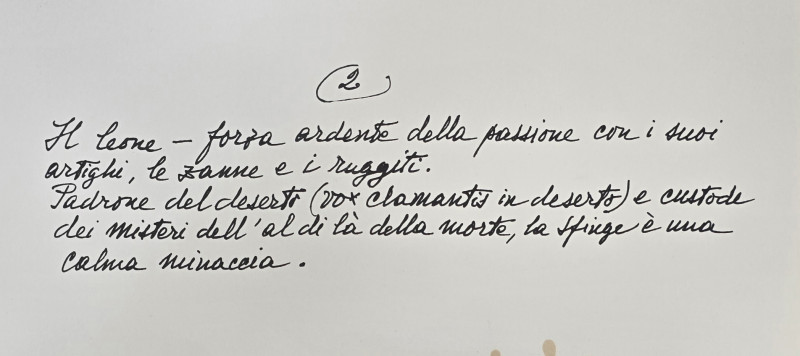 2
Il leone - forza ardente della passione con i suoi
artighi, le zanne e i ruggiti.
Padrone del deserto (vox clamantis in deserto) e custode
dei misteri dell'al di là della morte, la sfinge è una
calma minaccia.